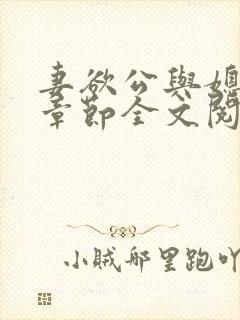 妻欲公與媳
章節全文閱
小賊那里跑吖